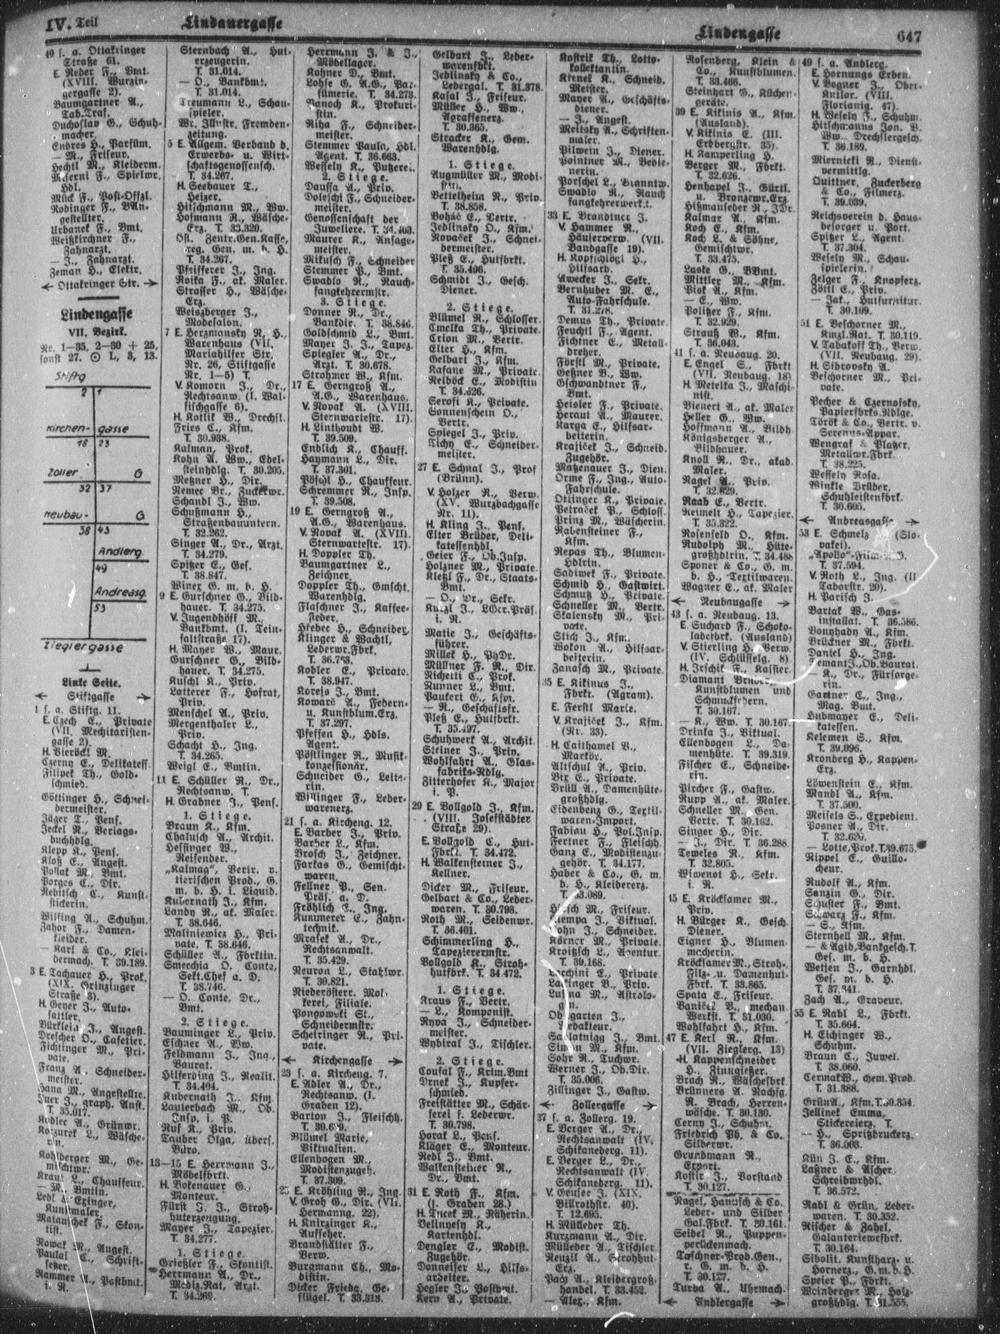 IV. Teil
Lindauergasse
Lindengasse
647
49 s. a. Ottakringer
Straße 61.
E. Reder F., Bmt.
(XVIII. Wurzin-
gergasse 2).
Baumgartner A.,
Tab.Traf.
Duchoslav G., Schuh-
macher.
Endres H., Parfüm.
— M., Friseur.
Hechtl M., Kleiderm.
F., Spielwr.
Hdl.
Mück F., Post-Offzl.
Rodinger F., BAn-
gestellter.
Urbanek F., Bmt.
Weißkirchner F.,
Zahnarzt.
— J., Zahnarzt.
Zeman H., Elektr.
Ottakringer Str.
Lindengasse
VII. Bezirk.
Nr. 1—35, 2—30 + 25,
sonst 27. ⊙ L, 3, 13.
Stiftg
2 1
Kirchen- gasse
18 23
Zoller G
32 37
Neubau- G
38 43
Andlerg
49
Andreasg.
53
Zieglergasse
Linke Seite.
Stiftgasse
1 s. a. Stiftg. 11.
E. Czech E., Private
(VII. Mechitaristen-
gasse 2).
H. Vieröckl M.
Czerny E., Delikatess.
Filipek Th., Gold-
schmied.
Göttinger H., Schnei-
dermeister.
Jäger T., Pens.
Jeckl R., Verlags-
buchhdlg.
Klepp K., Pens.
Kloß E., Angest.
Pollak M., Bmt.
Porges E., Dir.
Rebitsch C., Kunst-
stickerin.
Wilfing A., Schuhm.
Zahor F., Damen-
kleider.
— Karl & Co., Klei-
dermach. T. 39.189.
3 E. Tachauer H., Prok.
(XIX. Grinzinger
Straße 3).
H. Geyer J., Auto-
sattler.
Bürklein J., Angest.
Drescher O., Cafetier.
Fichtinger M., Pri-
vate.
Franz A., Schneider-
meister.
Hans M., Angestellte.
J., graph. Anst.
T. 35.017.
Kubler A., Grünwr.
Kozurek L., Wäsche-
rin.
Kohlberger M., Ge-
mischtwr.
Kraus L., Chauffeur.
— M., Bmtin.
Ledl & Eringer,
Kunstmaler.
Matauschek F., Skon-
tist.
Nowak M., Angest.
Paulal C., Schrift-
setzer.
Rammer A., Postbmt.
i. R.
Sternbach A., Hut-
erzeugerin.
T. 31.014.
— O., Bankbmt.
T. 31.014.
Treumann L., Schau-
spieler.
Wr. Illustr. Fremden-
zeitung.
5 E. Allgem. Verband d.
Erwerbs- u. Wirt-
schaftsgenossensch.
T. 34.267.
H. Seebauer T.,
Heizer.
Hirschmann M., Ww.
Hofmann R., Wäsche-
Erz. T. 33.320.
Öst. Zentr.Gen.Kasse,
reg. Gen. m. b. H.
T. 34.267.
Pfeifferer J., Ing.
Roika F., ak. Maler.
Strasser H., Wäsche-
Erz.
Weiszberger J.,
Modesalon.
7 E. Herzmansky R. H.,
Warenhaus (VII.
Mariahilfer Str.
Nr. 26, Stiftgasse
Nr. 1—5) T.
V. Komorn J., Dr.,
Rechtsanw. (I. Wal-
fischgasse 6).
H. Kasik W., Drechsl.
Fries E., Kfm.
T. 30.938.
Kalman, Prok.
Kohn A., Ww., Edel-
steinhdlg. T. 30.205.
Mezner H., Dir.
Nemec Br., Zuckerwr.
Schandl J., Ww.
Schußmann H.,
Straßenbauuntern.
T. 32.262.
Singer A., Dr., Arzt.
T. 34.279.
Spitzer E., Ges.
T. 38.847.
Winez G. m. b. H.
9 E. Gurschner G., Bild-
hauer. T. 34.275.
V. Jugendhoff M.,
Bankbmt. (I. Tein-
faltstraße 17).
H. Mayer W., Maur.
Gurschner G., Bild-
hauer. T. 34.275.
Kuschl K., Priv.
Latterer F., Hofrat,
Priv.
Menschel A., Priv.
Mergenthaler L.,
Priv.
Schacht H., Ing.
T. 34.265.
Weigl E., Bmtin.
11 E. Schüller R., Dr.,
Rechtsanw. T.
H. Grabner J., Pens.
1. Stiege.
Braun K., Kfm.
Chalusch A., Archit.
Helfinger W.,
Reisender.
„Kalmag“, Vertr. v.
tierischen Prod., G.
m. b. H. i. Liquid.
Kubernath J., Kfm.
Landy R., ak. Maler.
T. 38.646.
Maliniewicz H., Pri-
vate. T. 38.646.
Schüller A., Fbrktin.
Smerchia O., Conte,
Sekt.Chef a. D.
T. 38.746.
— O., Conte, Dr.,
Bmt.
2. Stiege.
Bauminger L., Priv.
Eichner A., Ww.
Feldmann J., Ing.,
Baurat.
Hilferding J., Realit.
T. 34.494.
Kubernath J., Kfm.
Lauterbach M., Ob.
Insp. i. P.
Ruf K., Priv.
Tauber Olga, übers.
Büro.
13—15 E. Herrmann J.,
Möbelfbrkt.
H. Botenauer G.,
Monteur.
Fürst J. J., Stroh-
huterzeugung.
Mayer J., Tapezier.
T. 34.277.
1. Stiege.
Grießler F., Skontist.
Herrmann A., Dr.,
Mediz.Rat, Arzt.
T. 34.269.
Herrmann J. & J.,
Möbellager.
Kohner D., Bmt.
Lohse G. A.G., Par-
fümerie. T. 34.273.
Panoch K., Prokuri-
stin.
Riha F., Schneider-
meister.
Stemmer Paula, Hdl.
Agent. T. 36.663.
Wessely K., Putzerei.
2. Stiege.
Daussa A., Priv.
Doleschl F., Schneider-
meister.
Genossenschaft der
Juweliere. T. 34.403.
Maurer K., Ansage-
meister.
Mikusch F., Schneider
Stemmer P., Bmt.
Swadlo R., Rauch-
fangkehrermstr.
3. Stiege.
Donner R., Dr.,
Bankdir. T. 38.846.
Goldschmid L., Bmt.
Mayer J. J., Tapez.
Spiegler A., Dr.,
Arzt. T. 30.678.
Strohmer W., Kfm.
17 E. Gerngroß A.,
A.G., Warenhaus.
V. Novak A. (XVIII.
Sternwartestr. 17).
H. Linthoudt W.
T. 39.509.
Endlich K., Chauff.
Haymann L., Dir.
T. 37.301.
Pöschl H., Chauffeur.
Schremmer R., Insp.
T. 39.508.
19 E. Gerngroß A.,
A.G., Warenhaus.
V. Novak A. (XVIII.
Sternwartestr. 17).
H. Doppler Th.
Baumgartner L.,
Zeichner.
Doppler Th., Gmscht.
Warenhdlg.
Flaschner J., Kaffee-
sieder.
Hieber H., Schneider.
Klinger & Wachtl,
Lederwr.Fbrk.
T. 36.793.
Kobler E., Private.
T. 38.947.
Korejs J., Bmt.
Kowarz A., Federn-
u. Kunstblum.Erz.
T. 37.297.
Pfeffen H., Hdls.
Agent.
Pöstlinger R., Musik-
konzessionär.
Schneider G., Leite-
rin.
Wilfinger F., Leder-
warenerz.
21 s. a. Kircheng. 12.
E. Barber J., Priv.
Barber L., Kfm.
Brosch J., Zeichner.
Farkas G., Gemischt-
waren.
Fellner P., Sen.
Präs. a. D.
Fröhlich E., Ing.
Kummerer E., Zahn-
technik.
Mrasek A., Dr.,
Rechtsanwalt.
T. 35.429.
Neuron L., Stahlwr.
T. 30.821.
Niederösterr. Mol-
kerei, Filiale.
Pongowski St.,
Schneidermstr.
Scheiringer R., Pri-
vate.
Kirchengasse
23 s. a. Kircheng. 7.
E. Adler A., Dr.,
Rechtsanw. (I.
Graben 12).
Barton J., Fleischh.
T. 30.6 9.
Blümel Marie,
Viktualien.
Ellenbogen M.,
Modistenzugeh.
T. 37.309.
25 E. Fröhling R., Ing.
V. Groh G., Dir. (VII.
Hermanng. 22).
H. Knirzinger K.,
Aufseher.
Brandstätter F.,
Verw.
Burgmann Th., Mo-
distin.
Dicker Frieda, Ge-
flügel. T. 33.318.
Gelbart J., Leder-
warenfbrkt.
Jedlinsky & Co.,
Ledergal. T. 31.378.
Kasal J., Friseur.
Müller H., Ww.,
Agraffenerz.
T. 30.365.
Stracker R., Gem.
Warenhdlg.
1. Stiege.
Augmüller M., Modi-
stin.
Bettelheim R., Priv.
T. 38.858.
Bohač E., Vertr.
Jedlinsky O., Kfm.
Novaček J., Schnei-
dermeister.
Pleß E., Hutfbrkt.
T. 35.496.
Schmidt J., Gesch.
Diener.
2. Stiege.
Blümel R., Schlosser.
Cmelka Th., Private.
Crion M., Vertr.
Eller H., Kfm.
Gelbart J., Kfm.
Kafane M., Private.
Relböck E., Modistin
T. 34.626.
Serosi K., Private.
Sonnenschein O.,
Vertr.
Spiegel J., Priv.
Tichy E., Schneider-
meister.
27 E. Schnal J., Prof
(Brünn).
V. Holzer R., Verw.
(XV. Wurzbachgasse
Nr. 11).
H. Kling J., Pens.
Elter Brüder, Deli-
katessenhdl.
Geier F., Ob.Insp.
Holzner M., Private.
Kletzl F., Dr., Staats-
Bmt.
— O., Dr., Sekr.
Kurzl J., LGer.Präs.
i. R.
Matie J., Geschäfts-
führer.
Millek H., PhDr.
Müllner F. R., Dir.
Nichetti C., Prok.
Nunner L., Bmt.
Paukert G., Kfm.
— R., Geschäftsfr.
Pleß E., Hutfbrkt.
T. 35.497.
Schuhwerk A., Archit.
Steiner J., Priv.
Wohlfahrt A., Glas-
fabriks-Rdlg.
Zitterhofer K., Major
i. P.
29 E. Vollgold J., Kfm.
(VIII. Josefstädter
Straße 29).
E. Vollgold C., Hut-
fbrkt. T. 34.472.
H. Walkensteiner J.,
Kellner.
Dicker M., Friseur.
Gelbart & Co., Leder-
waren. T. 30.798.
Roth M., Seidenwr.
T. 36.401.
Schimmerling H.,
Tapezierermstr.
Vollgold K., Stroh-
hutfbrk. T. 34.472.
1. Stiege.
Kraus F., Vertr.
— L., Komponist.
Ryva J., Schneider-
meister.
Wybiral J., Tischler.
2. Stiege.
Coufal F., Krim.Bmt
Drnek J., Kupfer-
schmied.
Freistätter M., Schär-
ferei f. Lederwr.
T. 30.798.
Horak L., Pens.
Kläger E., Monteur.
Redl J., Bmt.
Walkensteiner R.,
Dr., Bmt.
31 E. Roth F., Kfm.
(I. Graben 28.)
H. Tricek M., Näherin.
Bellnyesy K.,
Kartenhdl.
Dengler E., Modist.
Zugehör.
Donneiser L., Hilfs-
arbeiter.
Hegler J., Postbmt.
Kern A., Private.
Kostrik Th., Lotto-
kollektantin.
Kirnek K., Schneid.
Meister.
Mayer A., Geschäfts-
diener.
— J., Angest.
Meitsky A., Schriften-
maler.
Pilwein J., Diener.
Pointner M., Bedie-
nerin.
Porschel L., Branntw.
Swadlo R., Rauch-
fangkehrerwerkst.
33 E. Brandtner J.
V. Hammer R.,
Häuserverw. (VII.
Bandgasse 19).
H. Kopschlögl H.,
Hilfsarb.
Awecker J., Sekr.
Bernhuber M. E.,
Auto-Fahrschule.
T. 31.278.
Demus Th., Private.
Feuchtl F., Agent.
Fichtner E., Metall-
dreher.
Förstl M., Private.
Geßner V., Ww.
Gschwandtner F.,
Bmt.
Heisler F., Private.
Heraut A., Maurer.
Karga E., Hilfsar-
beiterin.
Krajiček J., Schneid.
Zugehör.
Matzenauer J., Dien.
Orme F., Ing., Auto-
Fahrschule.
Ottinger K., Private.
Petraček P., Schloss.
Prinz M., Wäscherin.
Rabensteiner F.,
Kfm.
Repas Th., Blumen-
Hdlrin.
Sabiwet F., Private.
Schmid H., Gastwirt.
Schmutz H., Private.
Schneller M., Vertr.
Skalensky M., Pri-
vate.
Stich J., Kfm.
Wokon A., Hilfsar-
beiterin.
Zanasch M., Private.
35 E. Kikinus J.,
Fbrkt. (Agram).
E. Ferstl Marie.
V. Krajiček J., Kfm.
(Nr. 33).
H. Caithamel V.,
Markör.
Altschul A., Priv.
Bix E., Private.
Brüll A., Damenhüte-
großhdlg.
Eibenberg G., Textil-
waren-Import.
Fabian H., Pol.Insp.
Fertner F., Fleischh.
Ganz E., Modistenzu-
gehör. T. 34.177.
Haber & Co., G. m.
b. H., Kleidererz.
T. 33.089.
M., Friseur.
Kempa J., Viktual.
John J., Schneider.
Körner M., Private.
Kroitzsch L., Agentur.
T. 39.168.
Larchini E., Private
V., Priv.
Luksna M., Astrolo-
gin.
J.,
Redakteur.
J., Bmt.
Simon M., Kfm.
Sohr R., Tuchwr.
Werner J., Ob.Dir.
T. 35.006.
Zillinger J., Gastw.
Zollergasse
37 s. a. Zollerg. 19.
E. Berger A., Dr.,
Rechtsanwalt (IV.
Schikaneberg. 11).
E. Berger L., Dr.,
Rechtsanwalt (IV.
Schikaneberg. 11).
V. Geusce J. (XIX.
Billrothstr. 40).
T. 12.695.
H. Mülleder Th.
Kurzmann A., Dir.
Mülleder A., Tischler
Renzll A., Strohhut-
Erz.
Patz A., Kleidergroß-
handel. T. 33.452.
— Alex., Kfm.
Rosenberg, Klein &
Co., Kunstblumen.
T. 33.466.
Steinhart G., Küchen-
geräte.
39 E. Kikinis A., Kfm.
(Ausland).
V. Kikinis E. (III.
Erdbergstr. 35).
H. Kamperling H.
Berger M., Fbrkt.
T. 32.626.
Henhapel J., Gürtl.
u. Bronzewr.Erz.
Hitzmanseder R., JDr.
Kalmar A., Kfm.
Koch E., Kfm.
Koch L. & Söhne,
Gemischtwr.
T. 33.475.
Laske G., BBmt.
Mittler M., Kfm.
Piok A., Kfm.
— E., Ww.
Politzer F., Kfm.
T. 32.929.
Strauß W., Kfm.
T. 36.043.
41 s. a. Neubaug. 20.
E. Engel S., Fbrkt.
(VII. Neubaug. 18)
H. Metelka J., Maschi-
nist.
Bienert A., ak. Maler
Heller G., Ww.
Hoffmann A., Bildh.
Königsberger A.,
Bildhauer.
Knoll R., Dr., akad.
Maler.
Nagel A., Priv.
T. 32.629.
Raab E., Vertr.
Reimelt H., Tapezier.
T. 35.322.
Rosenfeld O., Kfm.
Rudolph M., Hüte-
großhdlrin. T. 34.486
Sponer & Co., G. m.
b. H., Textilwaren.
Wagner E., ak. Maler
Neubaugasse
43 s. a. Neubaug. 13.
E. Suchard F., Schoko-
ladefbrk. (Ausland)
V. Stierling H., Verw.
(IV. Schlüsselg. 8).
H. Irschik F., Kassier.
Diamant Brüder,
Kunstblumen und
Schmuckfedern.
T. 30.167.
— K., Ww. T. 30.167.
Drinka J., Viktual.
Ellenbogen L., Da-
menhüte. T. 39.319.
Fischer E., Schneide-
rin.
Pircher F., Gastw.
Rupp A., ak. Maler.
Schneller M., Gen.
Vertr. T. 30.162.
Singer H., Dir.
— J., Dir. T. 36.288.
Teweles R., Kfm.
T. 32.805.
Wiwenot H., Sekr.
i. R.
45 E. Kröcksamer M.,
Priv.
H. Bürger K., Gesch.
Diener.
Eigner H., Blumen-
macherin.
Kröcksamer M., Stroh-
Filz- u. Damenhut-
Fbrk. T. 33.865.
Spata E., Friseur.
Baniček V., mechan.
Werkst. T. 31.030.
Wohlfahrt H., Kfm.
47 E. Kerl R., Kfm.
(VII. Zieglerg. 13)
H. Kappenschneider
H., Zinngießer.
Brach R., Wäschefbrk
Brünners A. Nachfg.
R. Brach, Herren-
wäsche. T. 30.130.
Cerny J., Schuhm.
Friedrich Ph. & Co.,
Silberwr.
Grundmann R.,
Export.
Kastir J., Vorstand
T. 30.127.
Nagel, Hanusch & Co.,
Leder- und Silber
Gal.Fbrk. T. 30.161.
Seidel R., Puppen-
perückenmach.
Taschner-Prod.Gen.,
r. G. m. b. H.
T. 30.127.
Turba A., Uhrmach.
Andlergasse
49 s. a. Andlerg.
E. Hornungs Erben.
V. Wogner J., Ober-
kntlor. (VIII.
Florianig. 47).
H. Wesely F., Schuhm.
Hitschmanns Jon. V.
Ww., Drechslergesch.
T. 36.189.
Miernicki R., Dienst-
vermittlg.
Quittner, Zuckerberg
& Co., Filmerz.
T. 39.039.
Reichsverein d. Haus-
besorger u. Port.
Spitzer L., Agent.
T. 37.304.
Wesely M., Schau-
spielerin.
Zelger F., Knopferz.
Zöttl E., Priv.
— Jak., Hutfurnitur.
T. 30.109.
51 E. Beschorner M.,
Kmzl.Rat. T. 30.119.
V. Tabakoff Th., Verw.
(VII. Neubaug. 29).
H. Sibrovsky A.
Beschorner M., Pri-
vate.
Pecher & Czernosky,
Papierfbrks.Rdlge.
Török & Co., Vertr. v.
Serenus-Appar.
Wengraf & Plager,
Metallwr.Fbrk.
T. 38.225.
Wessely Rosa.
Winkle Brüder,
Schuhleistenfbrk.
T. 30.605.
Andreasgasse
53 E. Schmelz (Slo-
wakei).
„Apollo“-Film-A.G.
T. 37.594.
V. Roth L., Ing. (II.
Taborstr. 20).
H. Parisch J.
Bartak W., Gas-
installat. T. 36.586.
Bonyhady A., Kfm.
Brückner M., Fbrkt.
Daniel H., Ing.
Demant J., Ob.Baurat.
— K., Dr., Fürsorge-
rin.
Gartner E., Ing.,
Mag. Bmt.
Hubmayer E., Deli-
katessen.
Kelemen S., Kfm.
T. 39.096.
Kronberg H., Kappen-
Erz.
Löwenstein E., Kfm.
Mandl A., Kfm.
T. 37.500.
Meisels S., Expedient.
Posner A., Dir.
T. 32.635.
— Lotte, Prok. T. 39.675.
Rippel E., Guillo-
cheur.
Rudolf A., Kfm.
Sanzin G., Dir.
Schuster F., Bmt.
Schwarz F., Kfm.
— S., Kfm.
Sternhell M., Kfm.
— & Agid, Bankgesch. T.
Ges. m. b. H.
Wetsen J., Garnhdl.
Ges. m. b. H.
T. 37.341.
Zach A., Graveur.
55 E. Rabl L., Fbrkt.
T. 35.664.
H. Eichinger W.,
Schuhm.
Braun C., Juwel.
T. 38.060.
Cermak W., chem.Prod.
T. 31.388.
Grün A., Kfm. T. 30.854.
Jellinek Emma,
Stickereierz. T.
— H., Spritzdruckerz.
T. 36.503.
Kün J. E., Kfm.
Laßner & Ascher,
Schreibwrhdl.
T. 36.572.
Rabl & Grün, Leder-
waren. T. 30.352.
Rischer & Zahel,
Galanteriewfbrk.
T. 30.164.
Sibolit, Kunstharz- u.
Hornerz., G.m.b.H.
Speier P., Fbrkt.
Weinberger M., Holz-
großhdlg. T. 31.555.